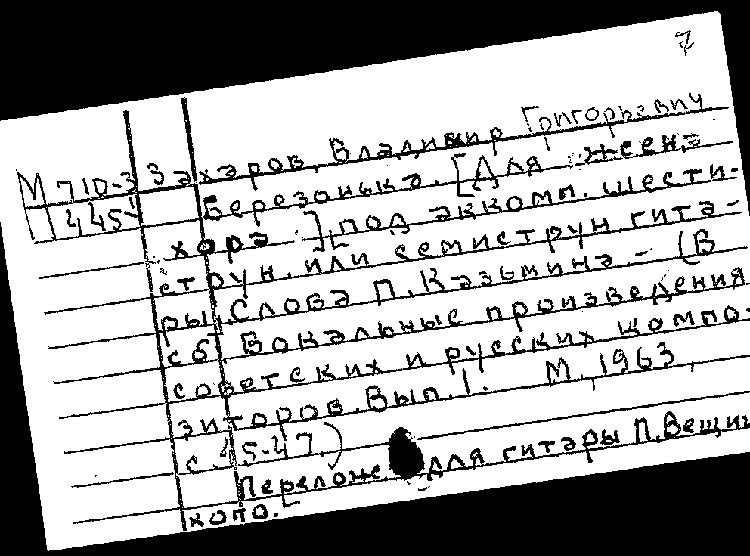 7
М 710-3 Захаров, Владимир Григорьевич
445 Березонька. [Для женс.
хора], под аккомп. шести-
струн. или семиструн. гита-
ры. Слова П. Казьмина. - (В
сб. Вокальные произведения
советских и русских компо-
зиторов. Вып. 1. М., 1963,
с 45-47.)
Перелож. для гитары П. Вещиц-
кого.